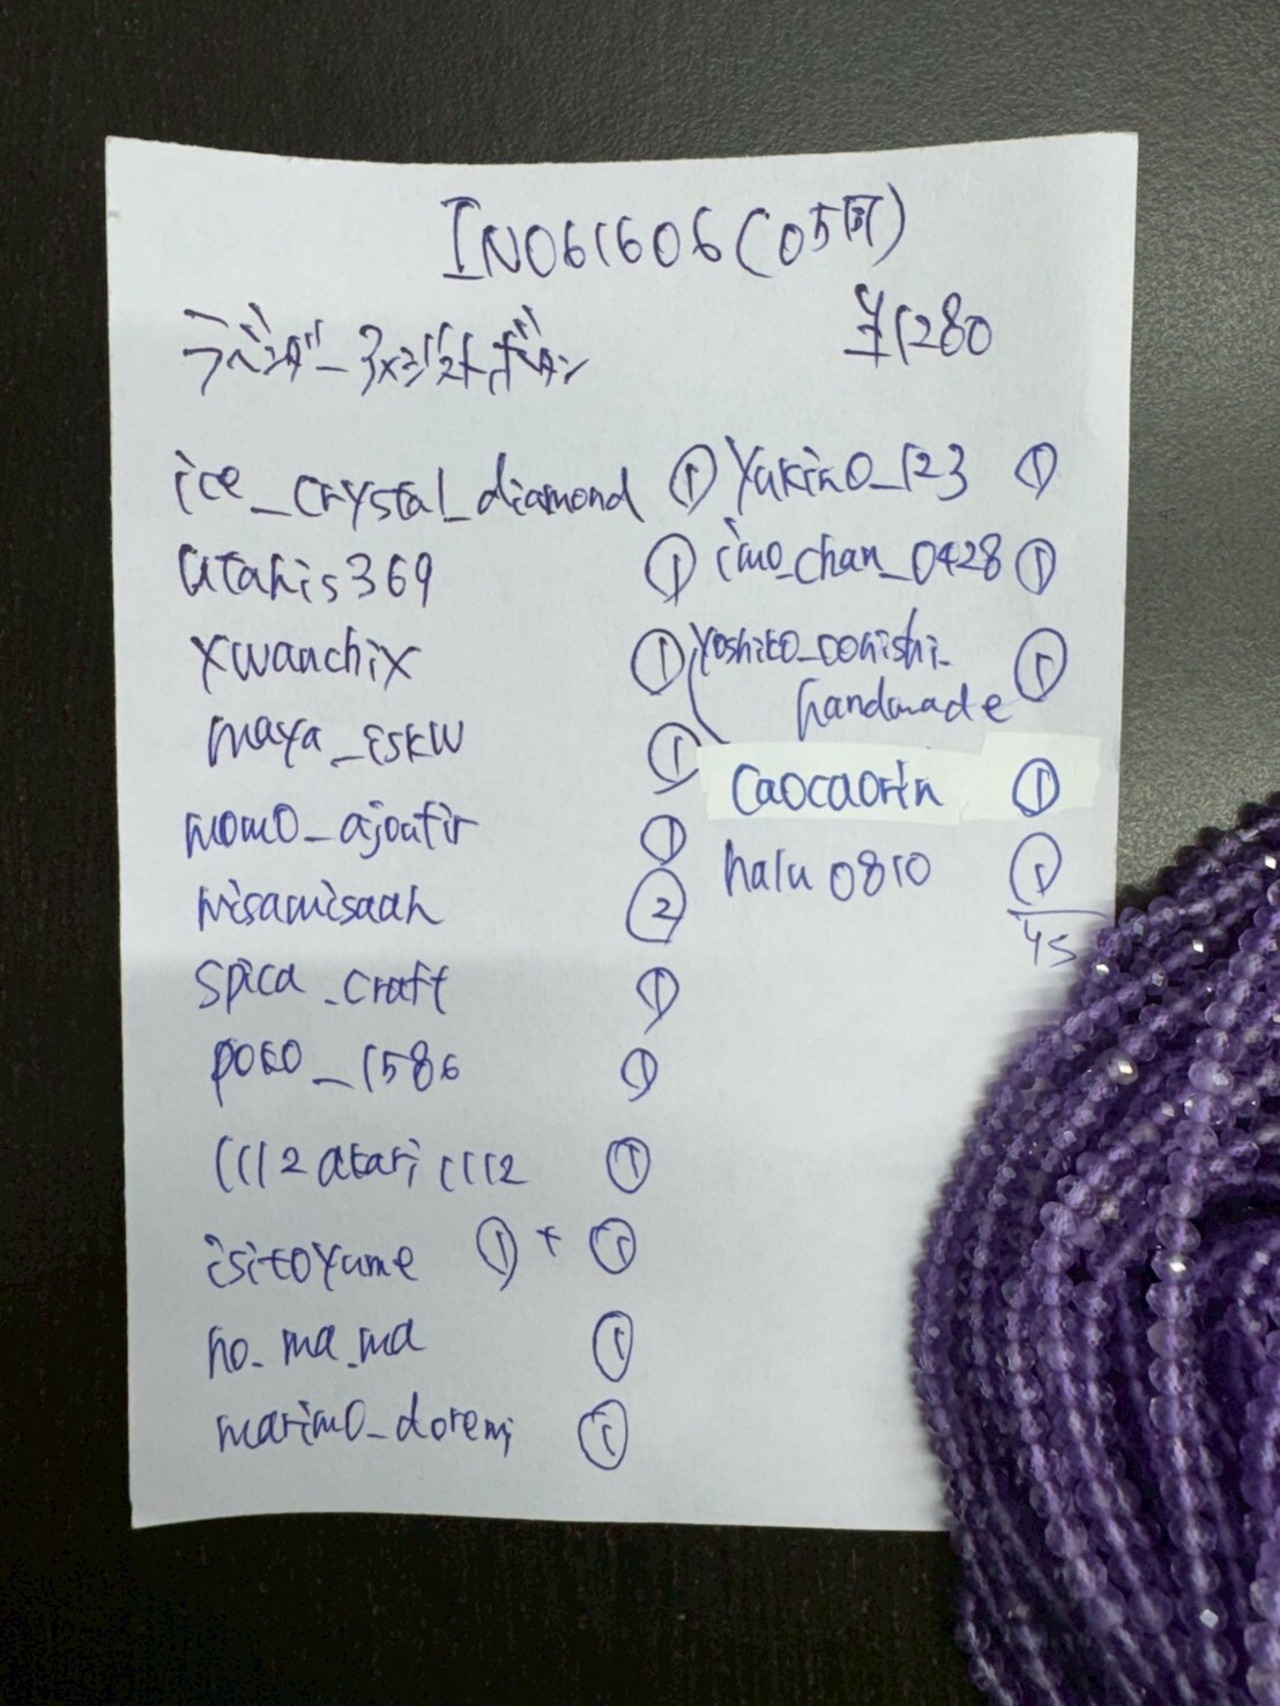 IN061606(05珂)
ラベンダーアメジストボタン
¥1280
ice_crystal_diamond ①
atakis369 ①
xwanchix ①
maya_iskw ①
momo_ajoutir ①
misamisaah ②
spica_craft ①
poko_1586 ①
1112atari1112 ①
isitoyume ① + ①
ho_ma_ma ①
marimo_doremi ①
yukino_123 ①
imo_chan_0428 ①
yoshiko_oohishi_
handmade ①
caocaorin ①
halu0810 ①
45